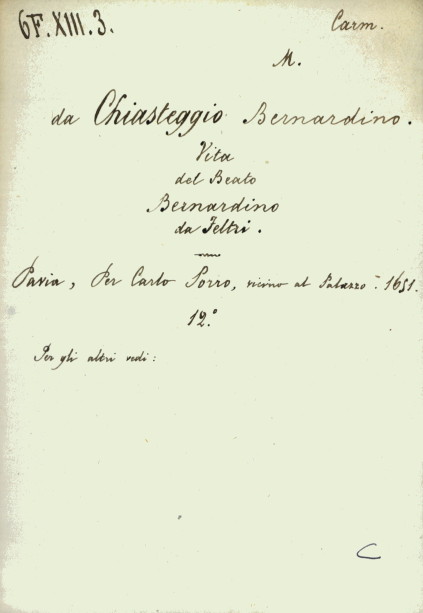 6F.XIII.3.
Carm.
M.
da Chiasteggio Bernardino.
Vita
del Beato
Bernardino
da Feltri.
Pavia, Per Carlo Porro, vicino al Palazzo. 1651.
12.°
Per gli altri vedi:
C